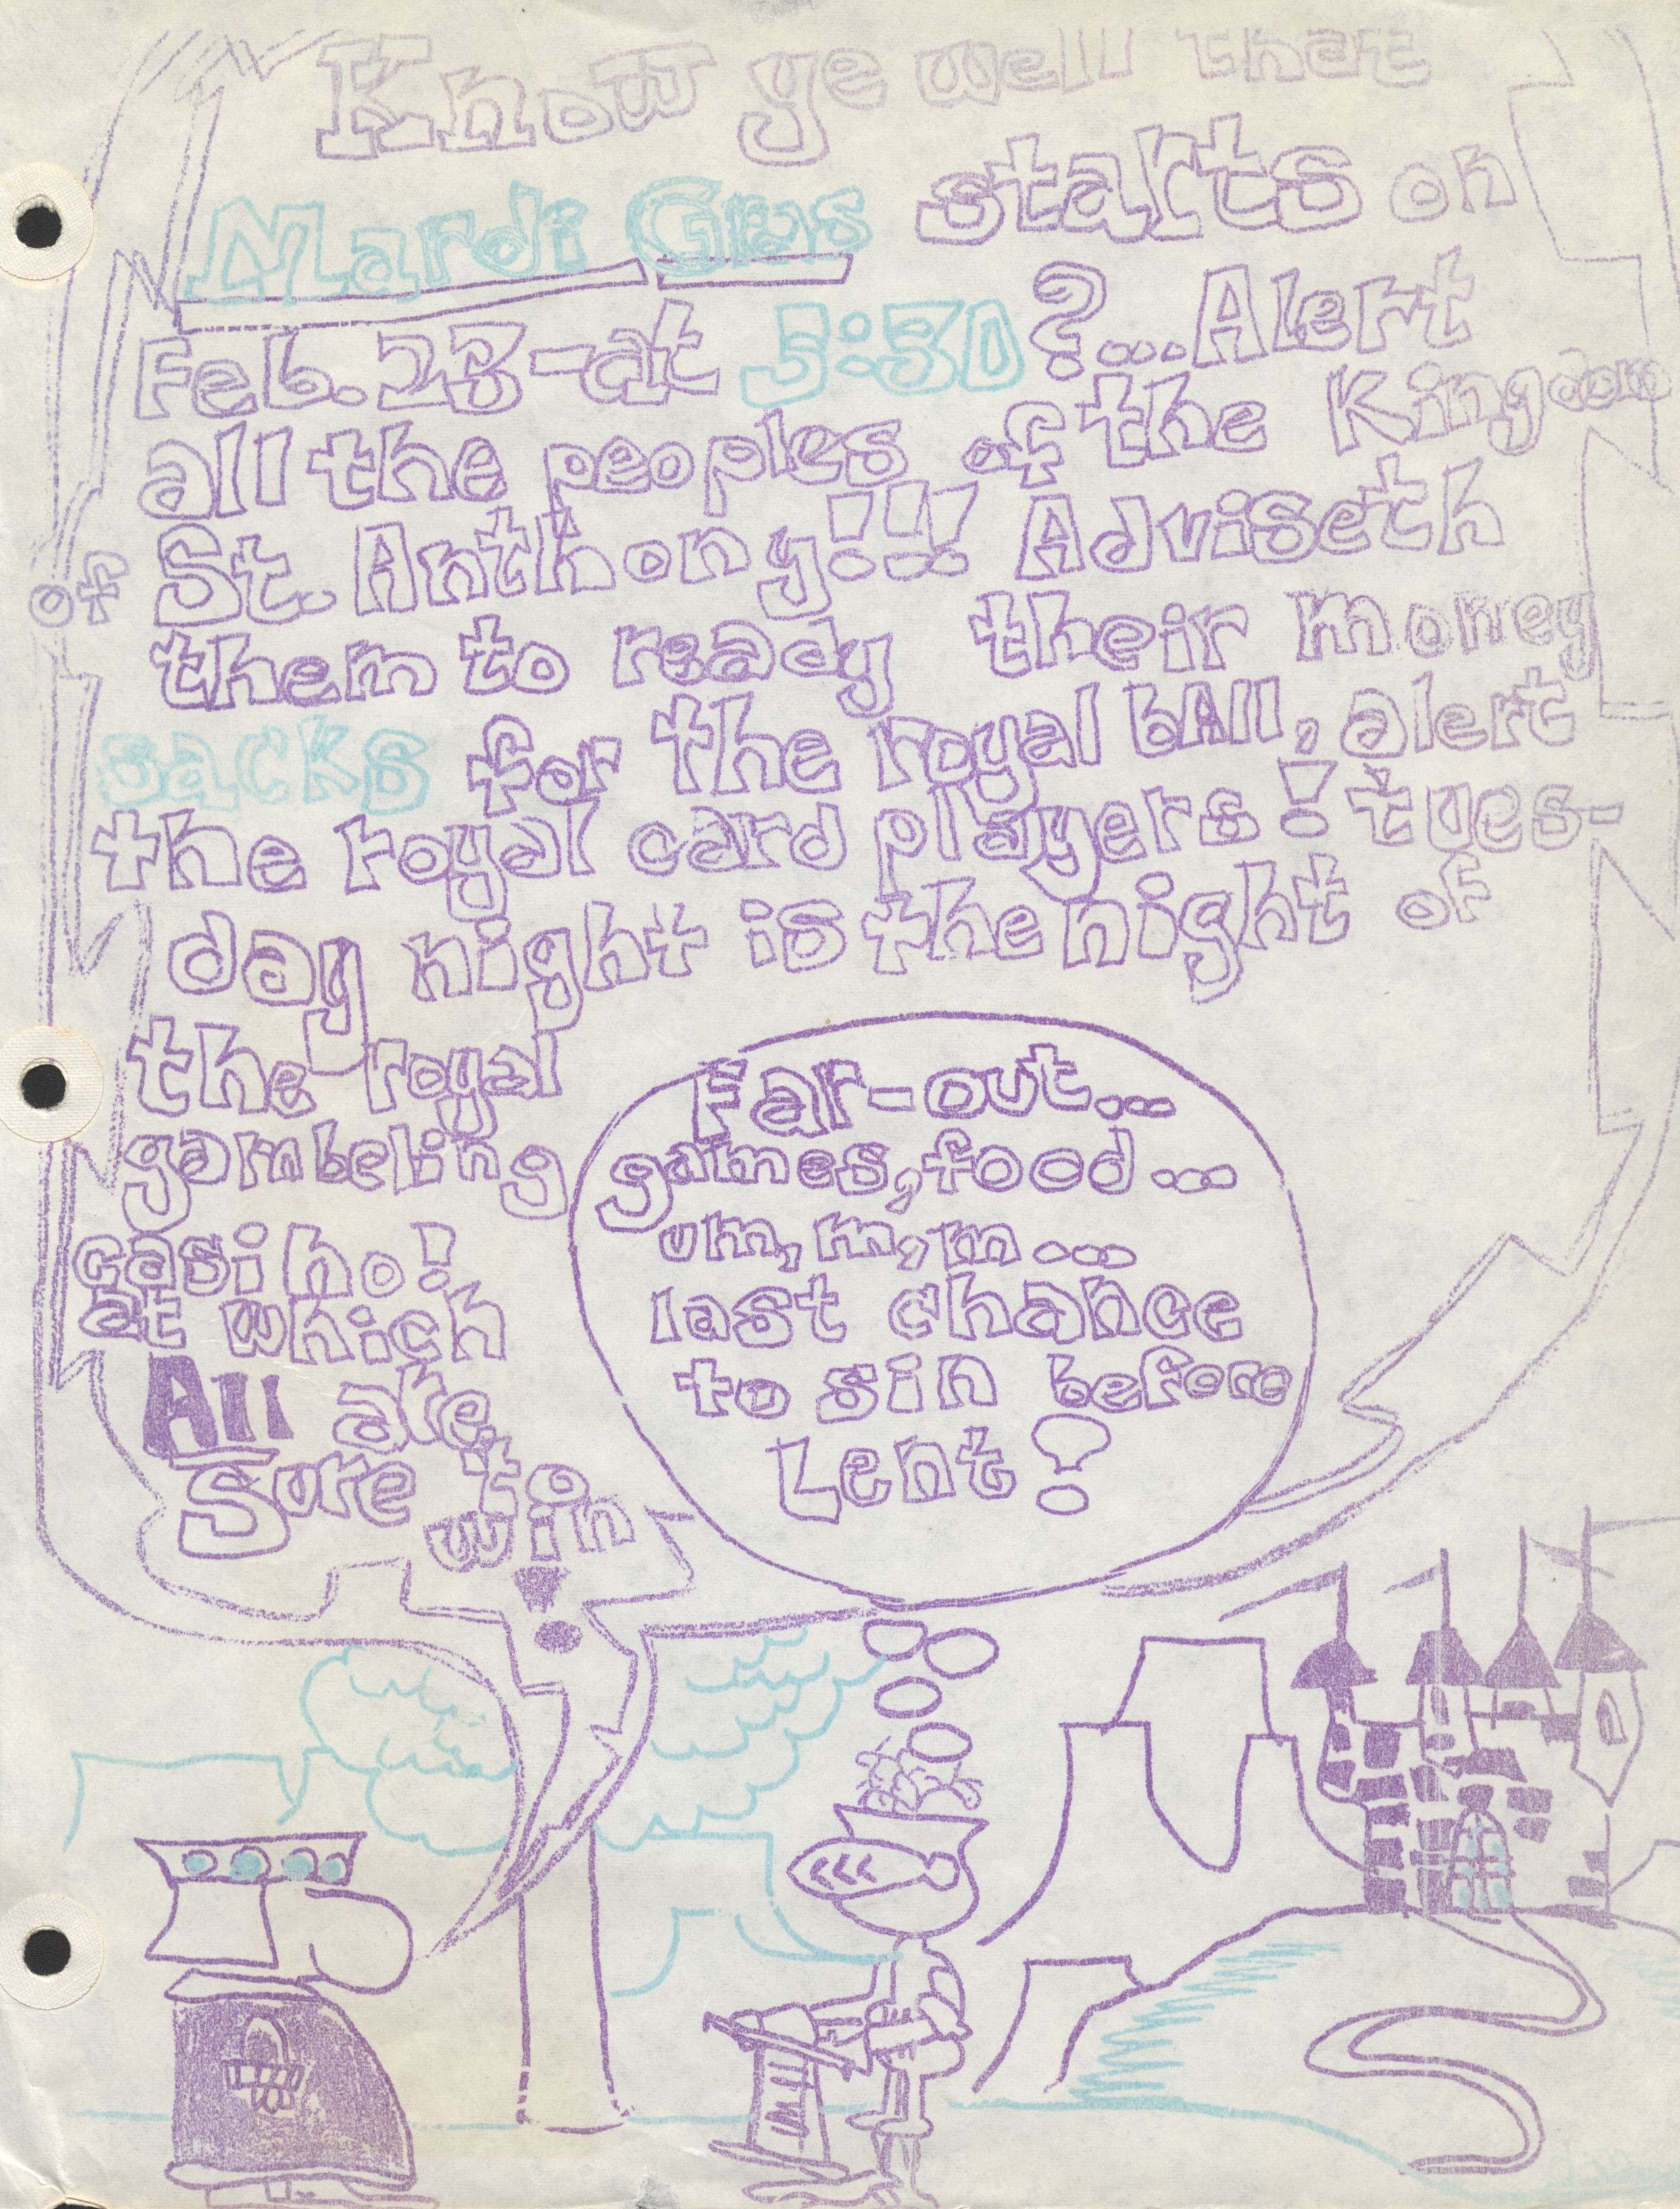 Know ye well that
Mardi Gras starts on
Feb. 23-at 5:30?...Alert
all the peoples of the Kingdom
of St. Anthony!!! Adviseth
them to ready their money
sacks for the royal bAll, alert
the royal card players! tues-
day night is the night of
the royal
gambeling
casino!
at which
All are
Sure to
win!
Far-out...
games, food...
um, m, m...
last chance
to sin before
Lent!